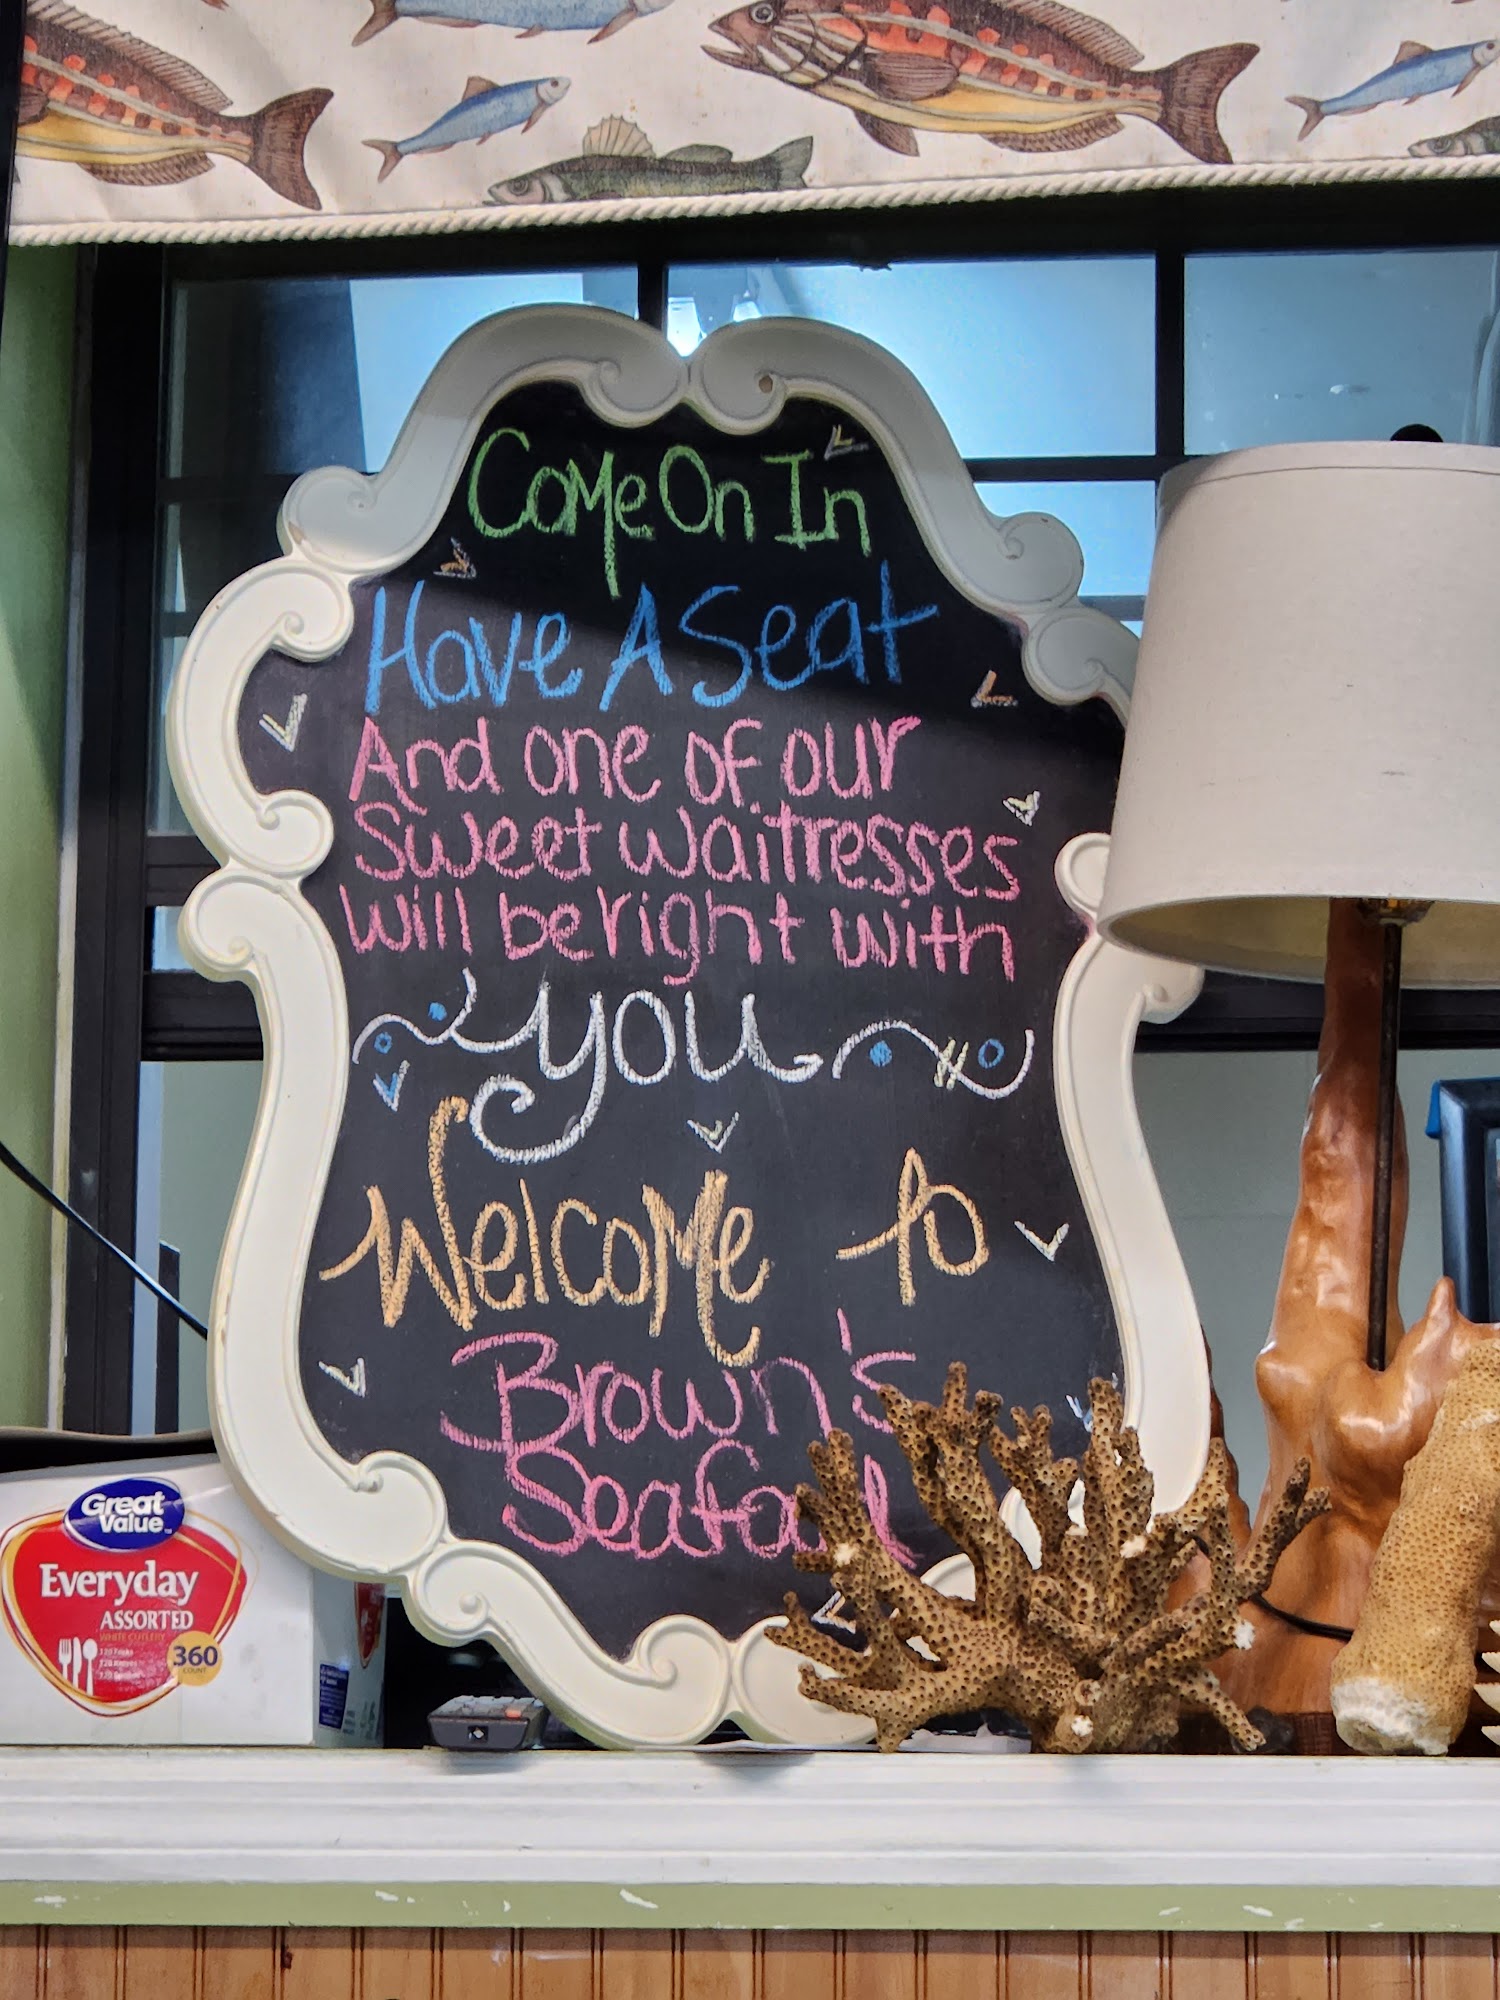 Come On In
Have A Seat
And one of our
Sweet waitresses
will be right with
you
Welcome to
Brown's
Seafood
Great
Value
Everyday
ASSORTED
WHITE CUTLERY
360
COUNT